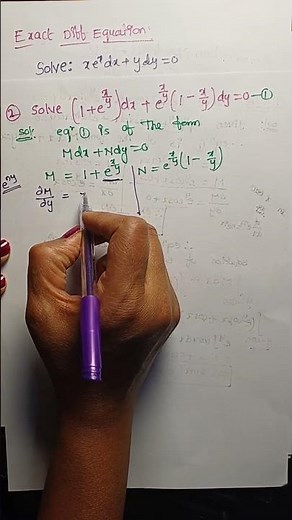 Exact Diff Equation
Solve: xeˣdx + ydy = 0
② Solve (1+e^(x/y))dx + e^(x/y)(1 - x/y)dy = 0 -①
Sol: eqⁿ ① is of the form
Mdx + Ndy = 0
M = 1 + e^(x/y) | N = e^(x/y)(1 - x/y)
∂M/∂y =